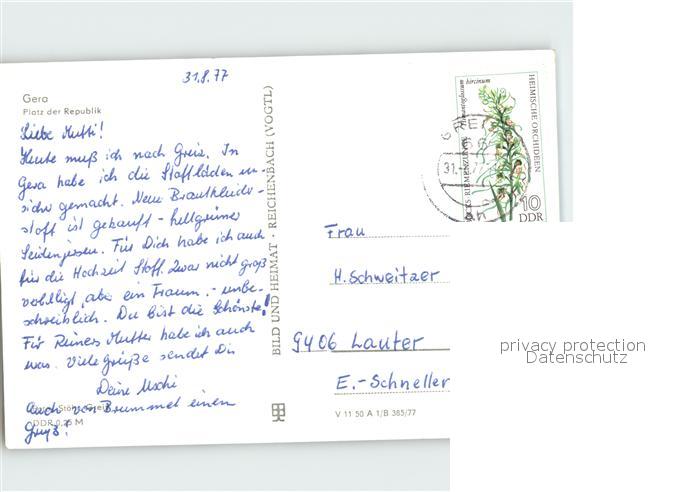 31.8.77
Gera
Platz der Republik
Liebe Mutti!
Heute muß ich nach Greiz. In
Gera habe ich die Stoffläden un-
sicher gemacht. Mein Brautkleid-
stoff ist gekauft - hellgrüner
Seidenjersey. Für Dich habe ich auch
für die Hochzeit Stoff. Zwar nicht groß
verbilligt, aber ein Traum - unbe-
schreiblich. Du bist die Schönste!
Für Reiners Mutter habe ich auch
was. Viele Grüße sendet Dir
Deine Uschi
Auch von Brummel einen
Gruß!
DDR 0,25 M
BILD UND HEIMAT · REICHENBACH (VOGTL)
V 11 50 A 1/B 385/77
Himantoglossum hircinum
HEIMISCHE ORCHIDEEN
RIEMENZUNGE
10
DDR
31.
Frau
H. Schweitzer
9406 Lauter
E.-Schneller
privacy protection
Datenschutz